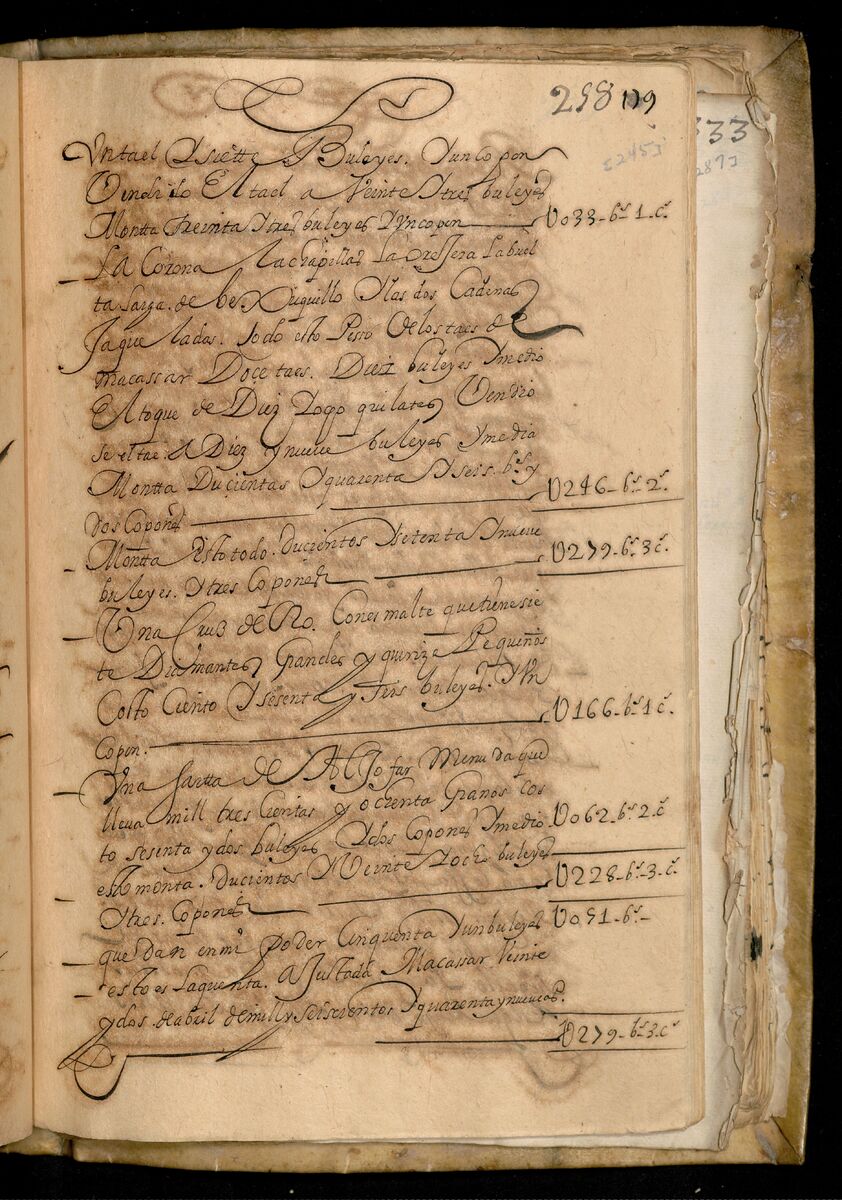 298 179
[2245]
333
287]
Un tael Y siette Buleyes. Y un Copon
Vendido El tael a Veinte Y tres buleyes
Montta treinta Y tres buleyes Y Un copon U033 - bs 1 - c.
La Corona la chapilla La
ta larga. de bexuquillo Y las dos Cadenas
Jaqueladas. todo esto Pesso de los taes de
macassar Doce taes. Diez buleyes Y medio
El toque de Diez Y ocho quilates Vendio
se el tae: A Diez y nueve buleyes Y media
Montta Ducientas Y quarenta Y seis bs y U246 - bs 2 c.
dos Copones
Montta Esto todo. Ducientos Y setenta Y nueve U279 - bs 3 c.
buleyes. Y tres Copones
Una Cruz de Oro. Con esmalte que tiene sie
te Diamantes Grandes y quinze Pequeños
Costo Ciento Y sesenta y seis buleyes. Y Un U166 - bs 1 c
Copon.
Una sartta de Aljofar Menuda que
lleva mill tres Cientas y ochenta Granos cos
to sesenta y dos buleyes Y dos Copones Y medio U062 - bs 2 c
esto monta. Ducientos Y Veinte Y ocho buleyes U228 - bs 3 - c.
Y tres. Copones
que dan en mi Poder Cinquenta Y un buleyes U051 - bs -
esto es la quenta. Ajustada Macassar Veinte
y dos. de abril de mill y seiscientos Y quarenta y nueve as.
U279 - bs 3 - c